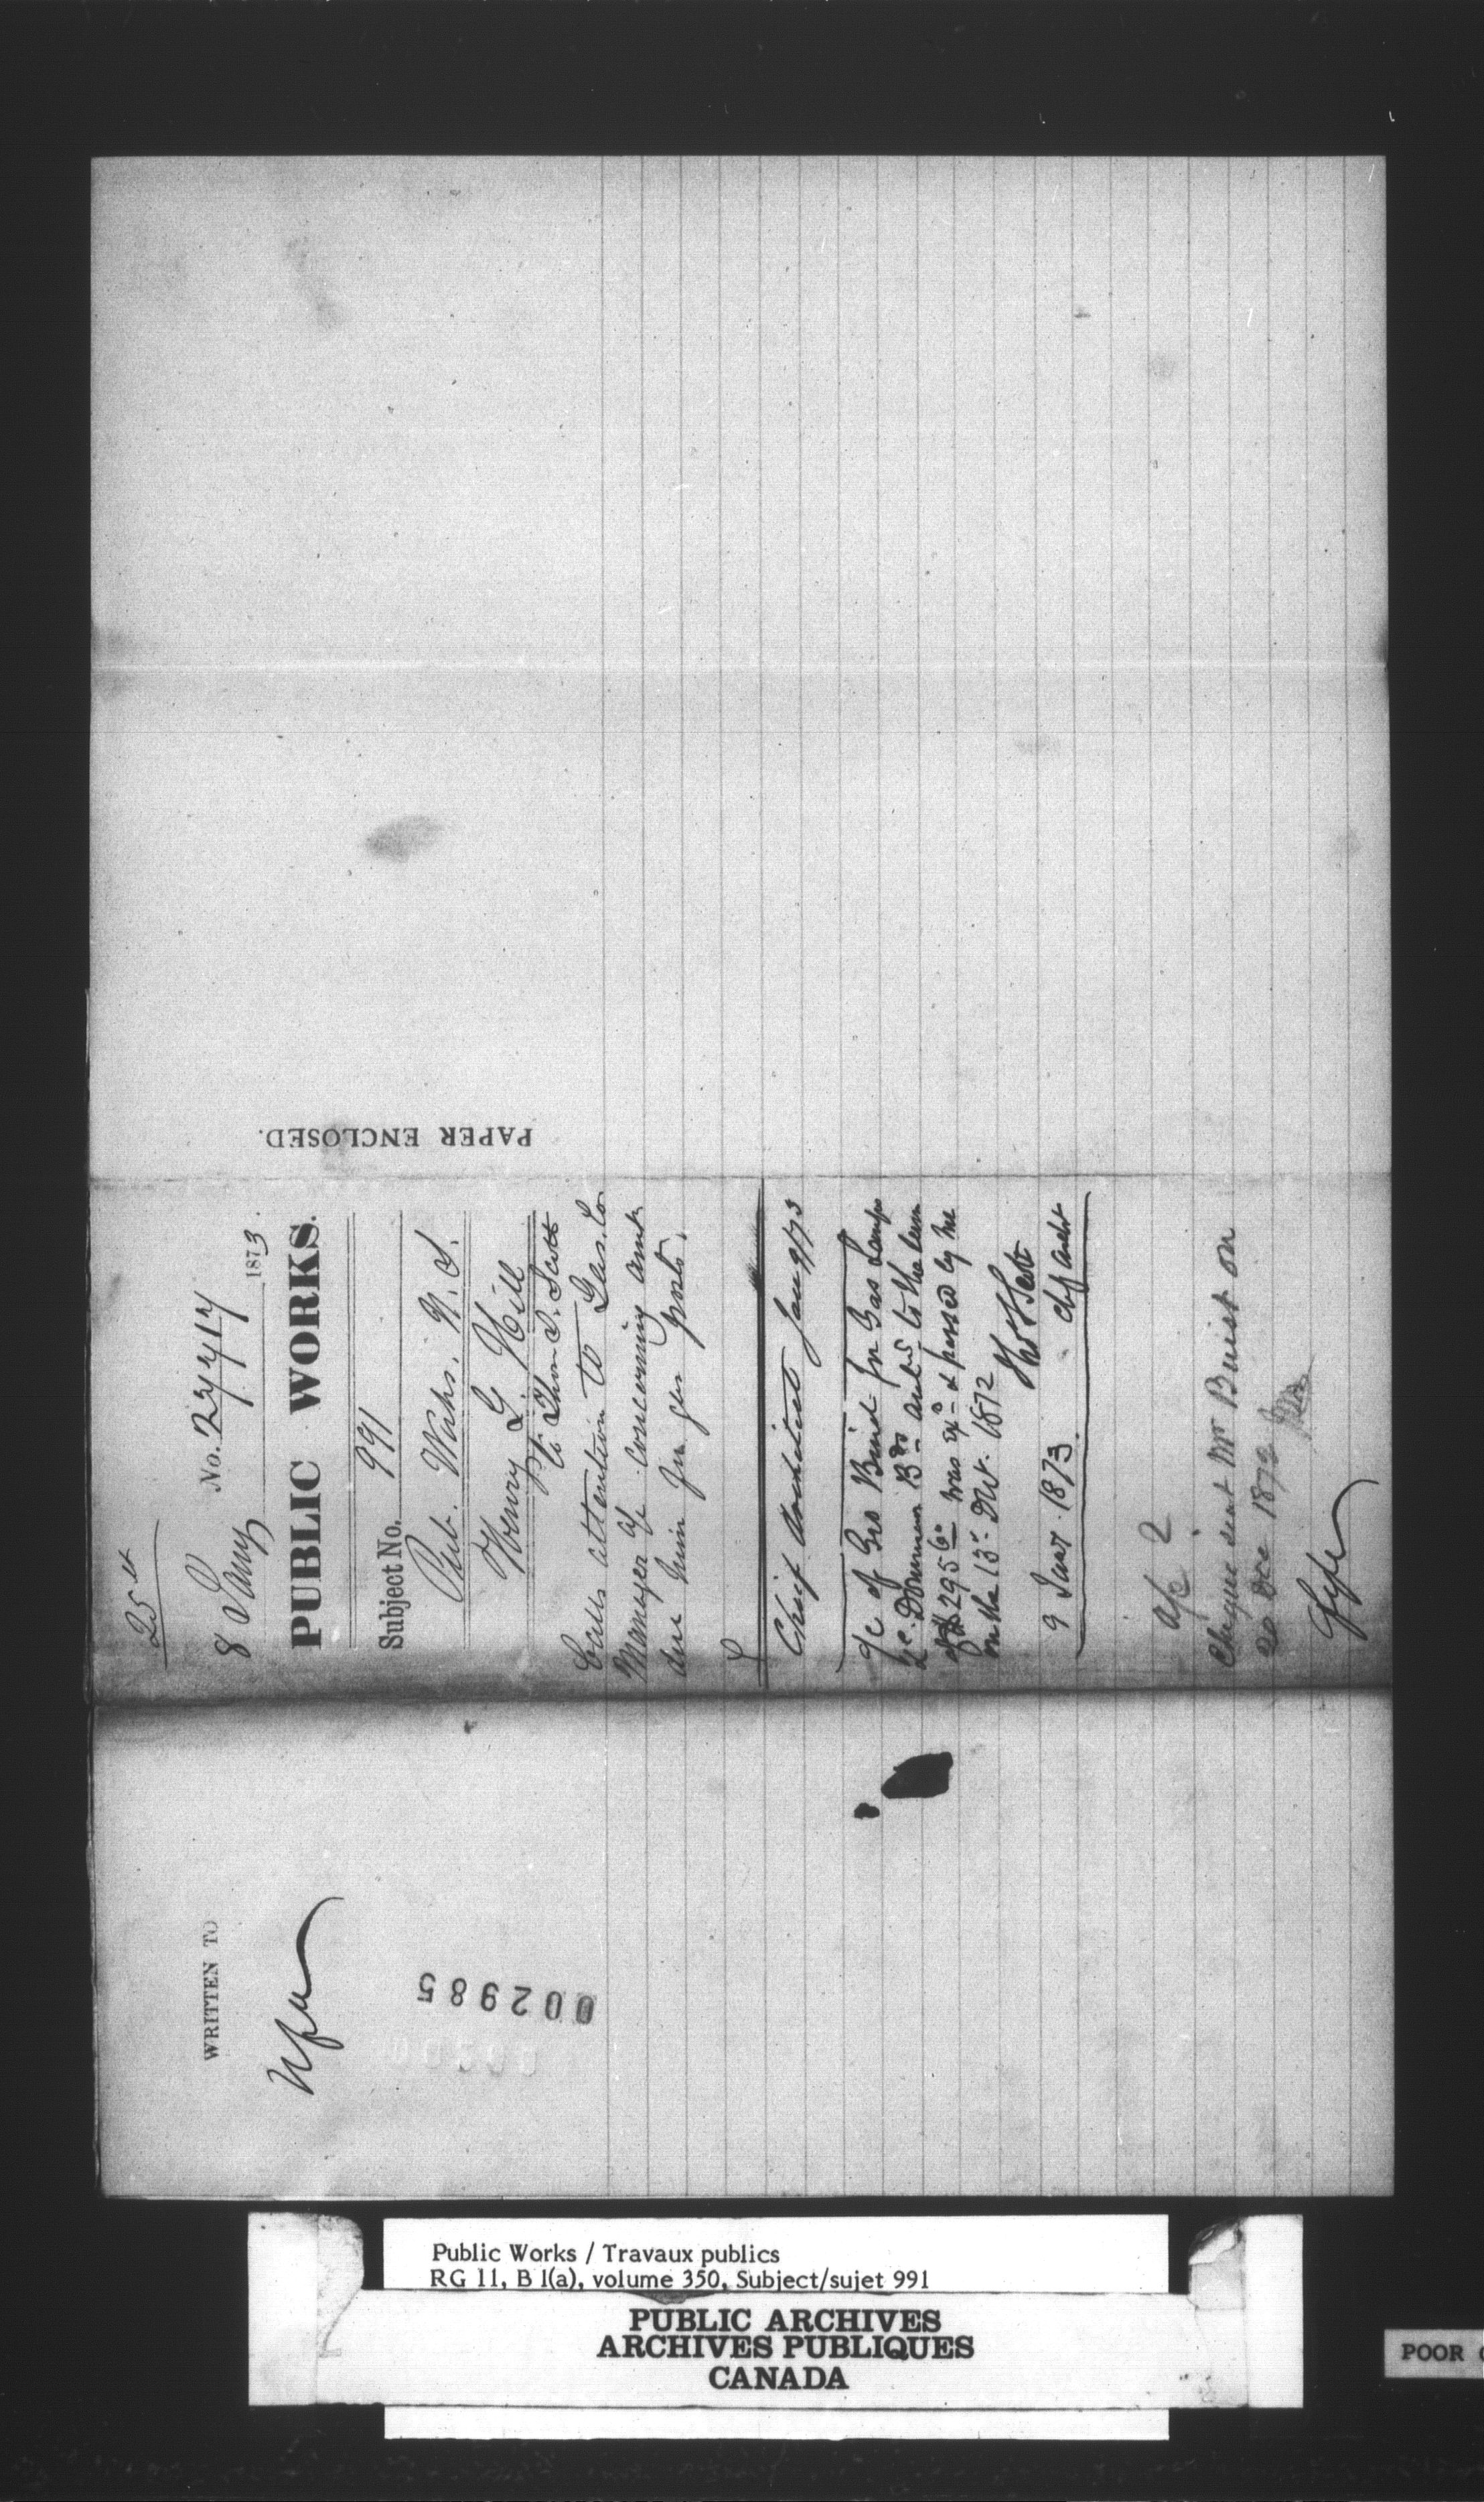 25 ct
No. 27417
8 Jany 1873.
PUBLIC WORKS.
Subject No. 991
Pub. Works. N. S.
Henry L. Hill
pr Thos S. Scott
Calls attention to Gas Co
Manager a/c concerning amt
due him for gas posts.
Chief Architect Jan 9/73
a/c of Geo Buist for Gas Lamps
&c. Dominion Bdg amtg to the sum
of $295 was exd & passed by me
on the 13" 1872
Thos S Scott
9 Jany. 1873. Chf Archt
a/c 2
Cheque sent Mr Buist on
20 Dec 1872
PAPER ENCLOSED.
WRITTEN TO
002985
Public Works / Travaux publics
RG 11, B 1(a), volume 350, Subject/sujet 991
PUBLIC ARCHIVES
ARCHIVES PUBLIQUES
CANADA
POOR